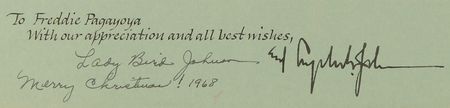 To Freddie Pagayoya
With our appreciation and all best wishes,
Lady Bird Johnson
and Lyndon B. Johnson
Merry Christmas! 1968